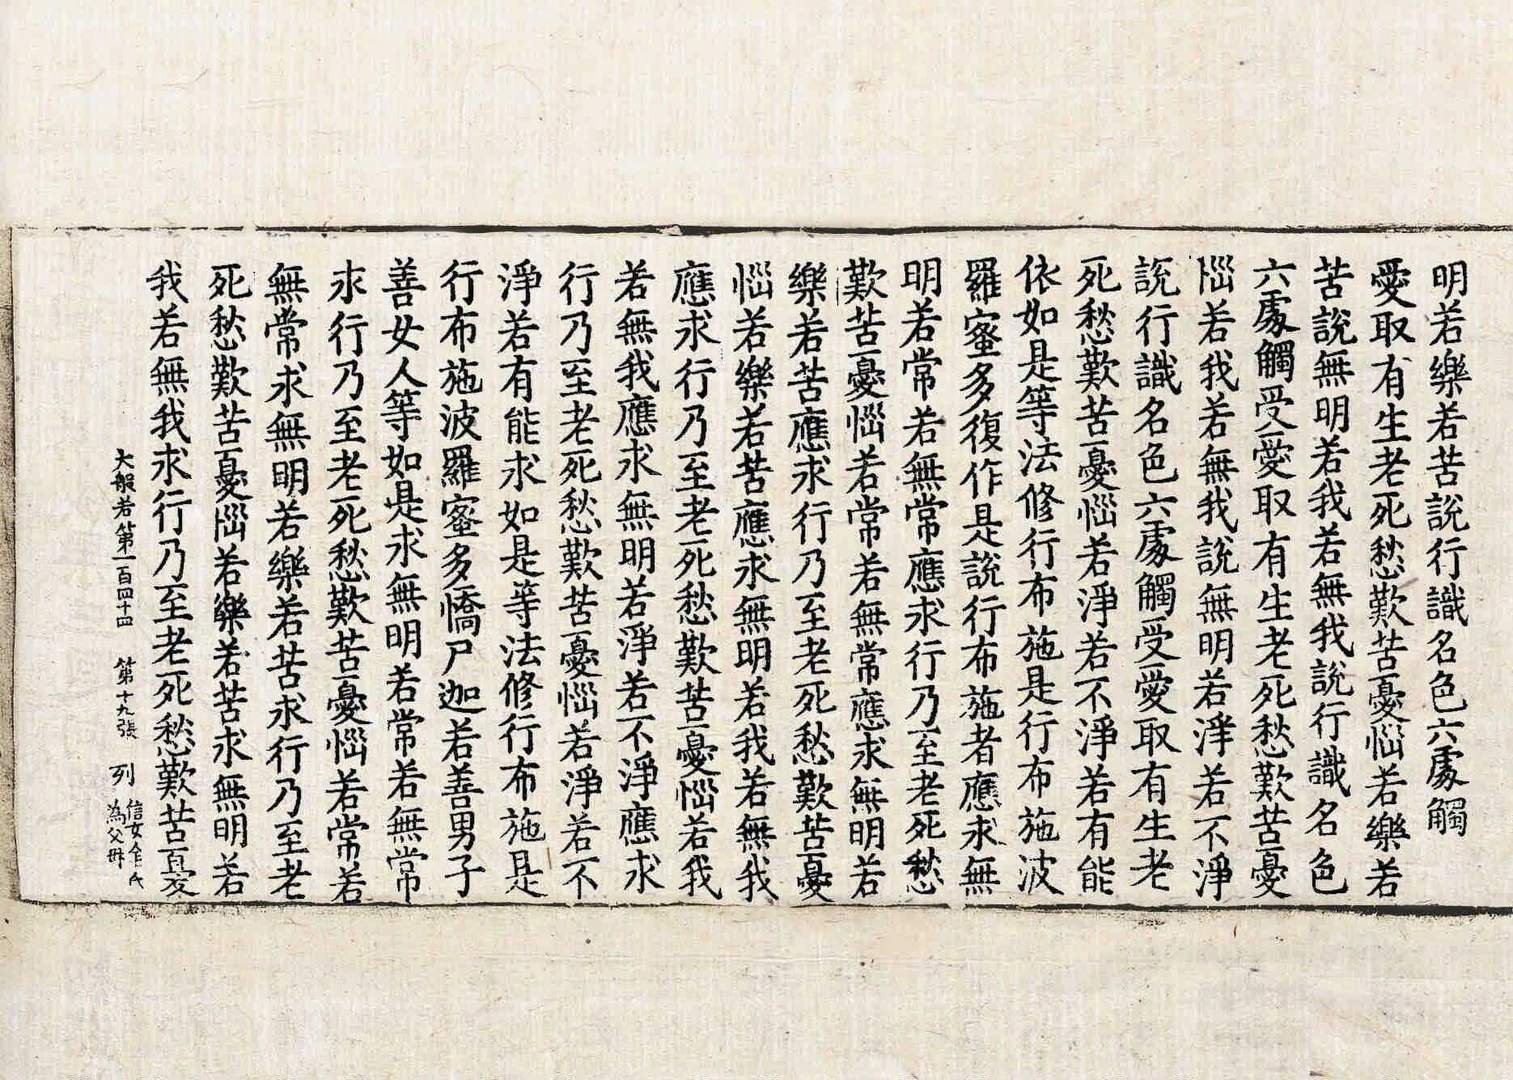 明若樂若苦說行識名色六處觸
愛取有生老死愁歎苦憂惱若樂若
苦說無明若我若無我說行識名色
六處觸受愛取有生老死愁歎苦憂
惱若我若無我說無明若淨若不淨
說行識名色六處觸受愛取有生老
死愁歎苦憂惱若淨若不淨若有能
依如是等法修行布施是行布施波
羅蜜多復作是說行布施者應求無
明若常若無常應求行乃至老死愁
歎苦憂惱若常若無常應求無明若
樂若苦應求行乃至老死愁歎苦憂
惱若樂若苦應求無明若我若無我
應求行乃至老死愁歎苦憂惱若我
若無我應求無明若淨若不淨應求
行乃至老死愁歎苦憂惱若淨若不
淨若有能求如是等法修行布施是
行布施波羅蜜多憍尸迦若善男子
善女人等如是求無明若常若無常
求行乃至老死愁歎苦憂惱若常若
無常求無明若樂若苦求行乃至老
死愁歎苦憂惱若樂若苦求無明若
我若無我求行乃至老死愁歎苦憂
大般若第一百四十四 第十九張 列 信女金氏
為父母